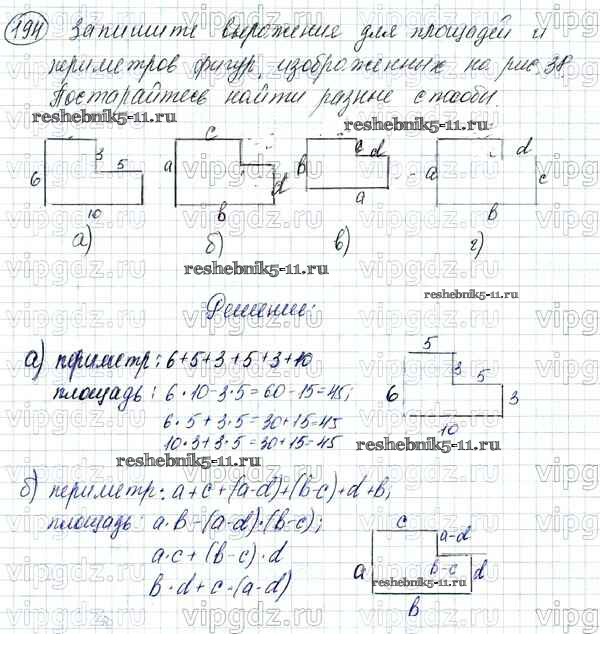 194 Запишите выражение для площадей и
периметров фигур, изображенных на рис. 38.
Постарайтесь найти разные способы.
reshebnik5-11.ru
reshebnik5-11.ru
6 3 5 10
a c d b
b c d a
a d c b
а) б) в) г)
reshebnik5-11.ru
reshebnik5-11.ru
Решение:
а) периметр: 6+5+3+5+3+10
площадь: 6·10-3·5=60-15=45;
6·5+3·5=30+15=45
10·3+3·5=30+15=45
5 3 5 6 3 10
reshebnik5-11.ru
reshebnik5-11.ru
б) периметр: a+c+(a-d)+(b-c)+d+b;
площадь: a·b-(a-d)·(b-c);
a·c+(b-c)·d
b·d+c·(a-d)
c a-d a b-c d b
reshebnik5-11.ru
vipgdz.ru